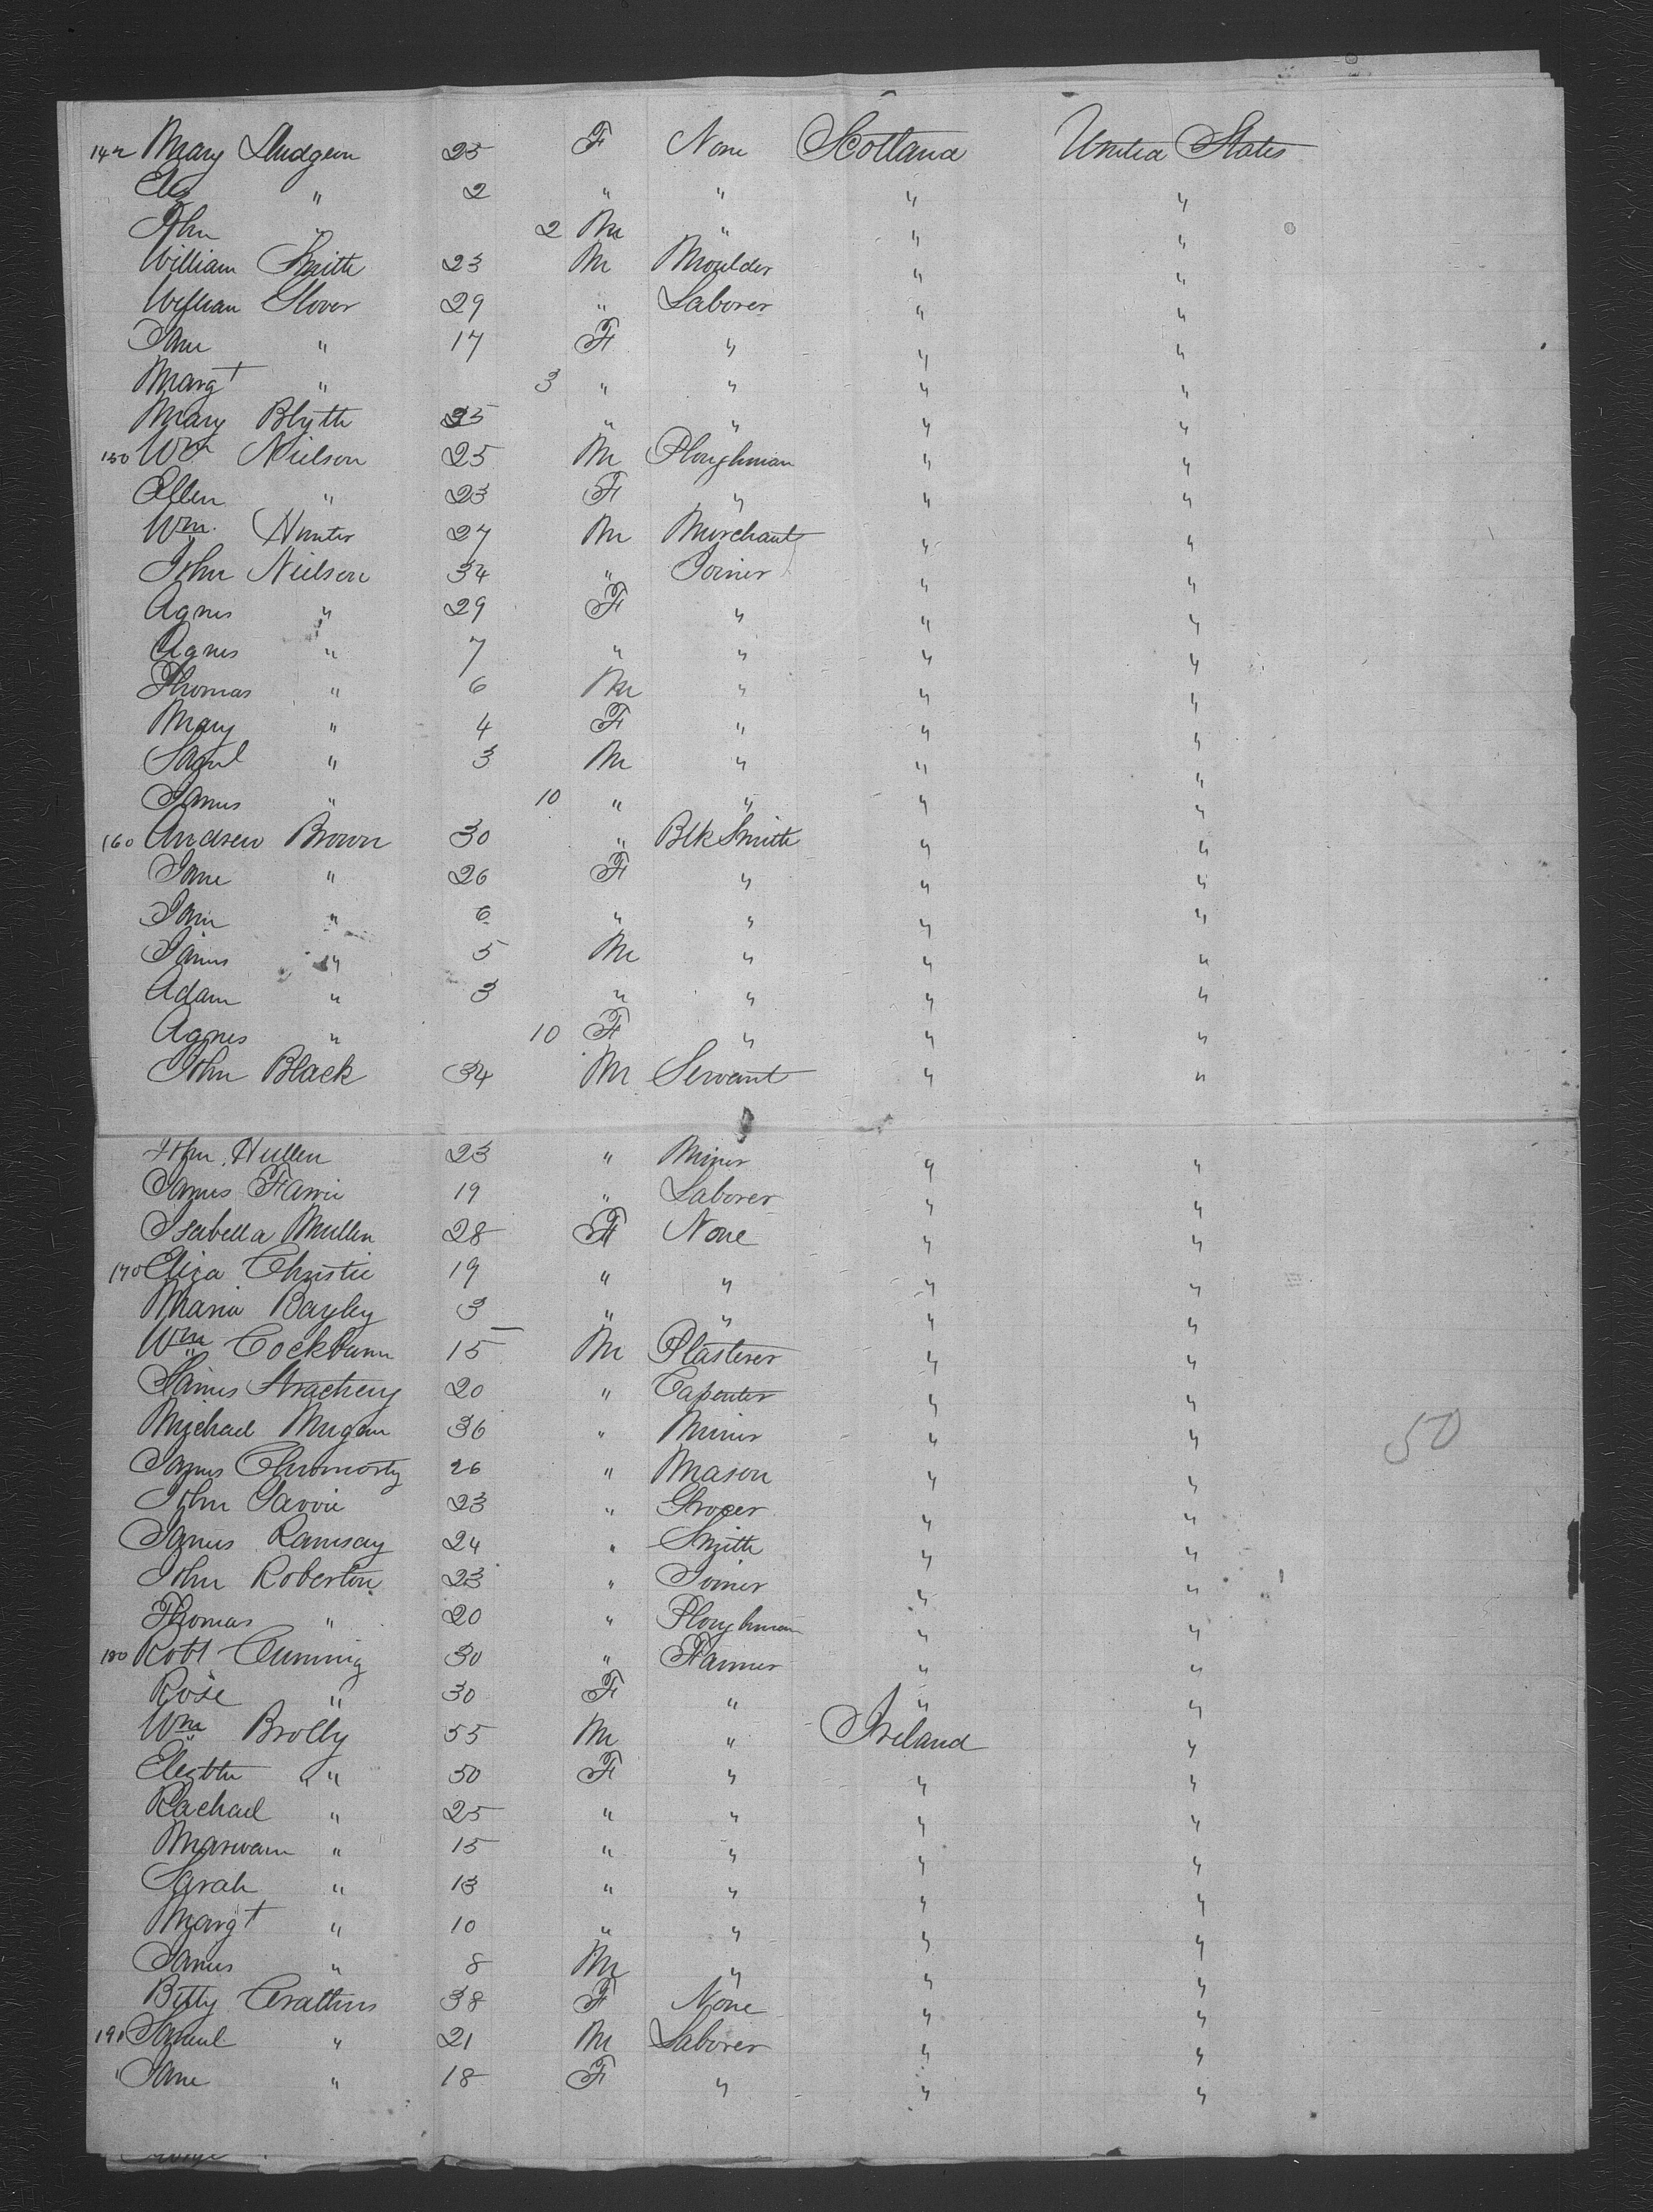 142 Mary Dudgeon 25 F None Scotland United States
Eliz " 2 " " " "
John " 2 M " " "
William Smith 23 M Moulder " "
William Glover 29 " Laborer " "
Jane " 17 F " " "
Margt " 3 " " " "
Mary Blyth 25 " " " "
150 Wm Nielson 25 M Ploughman " "
Ellen " 23 F " " "
Wm. Hunter 27 M Merchant " "
John Nielson 34 " Joiner " "
Agnes " 29 F " " "
Agnes " 7 " " " "
Thomas " 6 M " " "
Mary " 4 F " " "
Saml " 3 M " " "
James " 10 " " " "
160 Andrew Brown 30 " Blk Smith " "
Jane " 26 F " " "
Jane " 6 " " " "
James " 5 M " " "
Adam " 3 " " " "
Agnes " 10 F " " "
John Black 34 M Servant " "
John Hullen 23 " Miner " "
James 19 " Laborer " "
Isabella Mullen 28 F None " "
170 Eliza Christie 19 " " " "
Maria Bayley 3 " " " "
Wm Cockburn 15 M Plasterer " "
James Stracheny 20 " Capenter " "
Michael Mugan 36 " Miner " " 50
James 26 " Mason " "
John 23 " Grocer " "
James Ramsay 24 " Smith " "
John Roberton 23 " Joiner " "
Thomas " 20 " Ploughman " "
180 Robt Cumming 30 " Farmer " "
Rose " 30 F " " "
Wm Brolly 55 M " Ireland "
Elizbth " 50 F " " "
Rachael " 25 " " " "
" 15 " " " "
Sarah " 13 " " " "
Margt " 10 " " " "
James " 8 M " " "
Betty 38 F None " "
191 Samuel " 21 M Laborer " "
" Jane " 18 F " " "